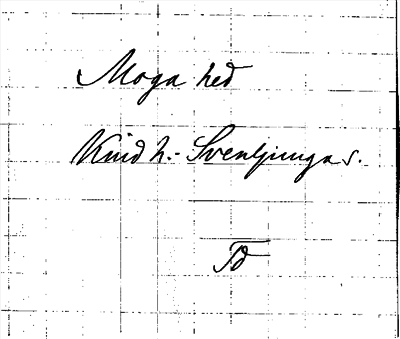 Moga hed
Kind h. - Svenljunga s.
Td